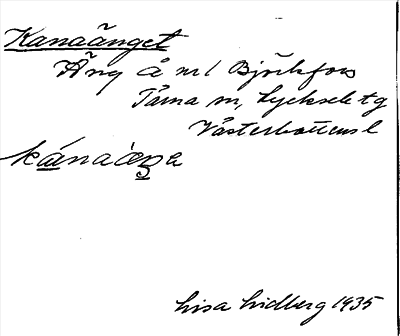 Kanaänget
Äng Å ml Björkfors
Tärna sn, Lycksele tg
Västerbottens l
kánaàŋe
Lisa Lidberg 1935